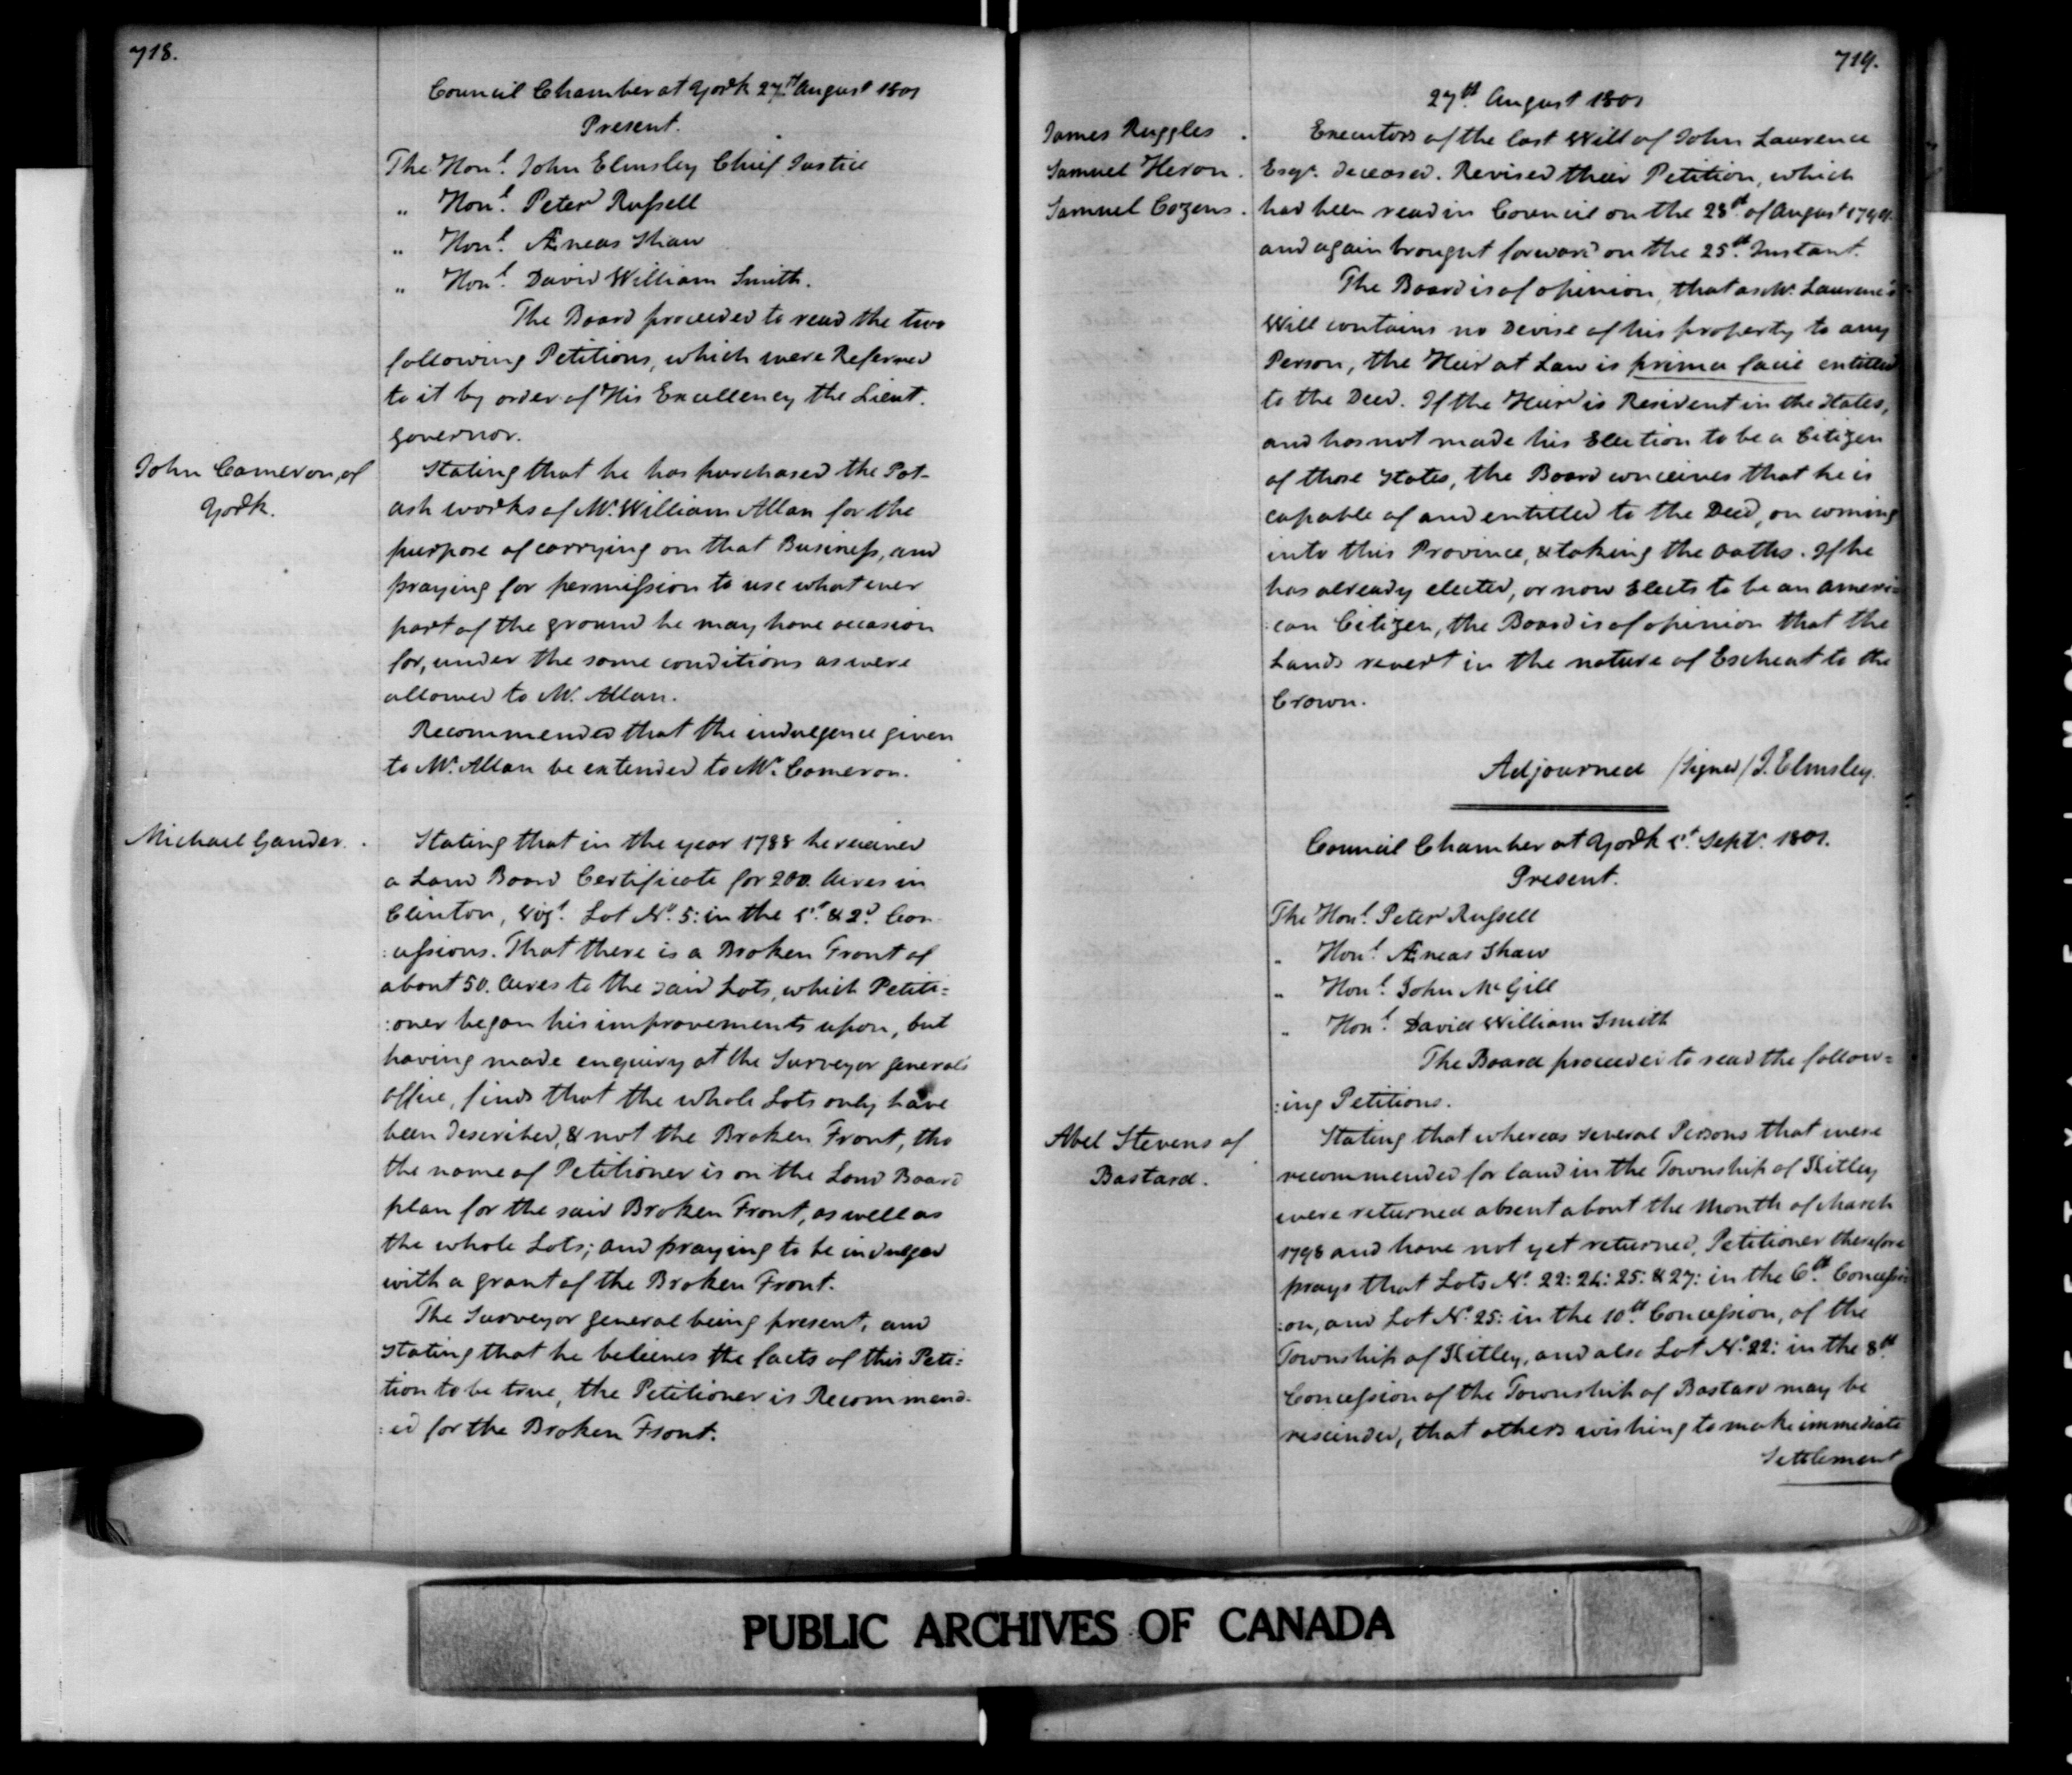 718.
Council Chamber at York 27th August 1801
Present.
The Honl. John Elmsley Chief Justice
„ Honl. Peter Russell
„ Honl. Æneas Shaw
„ Honl. David William Smith.
The Board proceeded to read the two
following Petitions, which were Referred
to it by order of His Excellency the Lieut.
Governor.
John Cameron, of
York.
Stating that he has purchased the Pot-
ash works of Mr. William Allan for the
purpose of carrying on that Business, and
praying for permission to use what ever
part of the ground he may have occasion
for, under the same conditions as were
allowed to Mr. Allan.
Recommended that the indulgence given
to Mr. Allan be extended to Mr. Cameron.
Michael Gander.
Stating that in the year 1788 he received
a Land Board Certificate for 200. Acres in
Clinton, Vizt. Lot No. 5: in the 1st. & 2d. Con-
:cessions. That there is a Broken Front of
about 50. Acres to the said Lots, which Petiti=
:oner began his improvements upon, but
having made enquiry at the Surveyor General's
Office, finds that the whole Lots only have
been described, & not the Broken Front, tho
the name of Petitioner is on the Land Board
plan for the said Broken Front, as well as
the whole Lots; and praying to be indulged
with a grant of the Broken Front.
The Surveyor General being present, and
stating that he believes the facts of this Peti=
tion to be true, the Petitioner is Recommend-
:ed for the Broken Front.
719.
27th. August 1801
James Ruggles
Samuel Heron.
Samuel Cozens.
Executors of the last Will of John Laurence
Esqr. deceased. Revised their Petition, which
had been read in Council on the 28th. of August
and again brought forward on the 25th. Instant.
The Board is of opinion, that as Mr. Laurence's
Will contains no Devise of his property to any
Person, the Heir at Law is prima facie entitled
to the Deed. If the Heir is Resident in the States,
and has not made his Election to be a Citizen
of those States, the Board conceives that he is
capable of and entitled to the Deed, on coming
into this Province, & taking the Oaths. If he
has already elected, or now Elects to be an Ameri=
:can Citizen, the Board is of opinion that the
Lands revert in the nature of Escheat to the
Crown.
Adjourned (Signed) J. Elmsley.
Council Chamber at York 1st. Septr. 1801.
Present.
The Honl. Peter Russell
„ Honl. Æneas Shaw
„ Honl. John McGill
„ Honl. David William Smith
The Board proceeded to read the follow=
:ing Petitions.
Abel Stevens of
Bastard.
Stating that whereas several Persons that were
recommended for land in the Township of Kitley
were returned absent about the Month of March
1798 and have not yet returned, Petitioner therefore
prays that Lots No. 22: 24: 25: & 27: in the 6th. Concessi
:on, and Lot No. 25: in the 10th. Concession, of the
Township of Kitley, and also Lot No. 22: in the 8th.
Concession of the Township of Bastard may be
rescinded, that others wishing to make immediate
Settlement
PUBLIC ARCHIVES OF CANADA